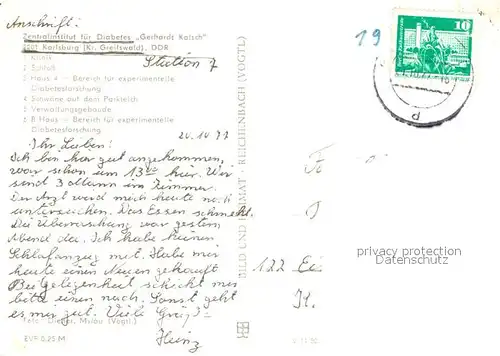 Anschrift:
Zentralinstitut für Diabetes „Gerhardt Katsch"
Karlsburg (Kr. Greifswald), DDR
Station 7
1 Klinik
2 Schloß
3 Haus A — Bereich für experimentelle
Diabetesforschung
4 Schwäne auf dem Parkteich
5 Verwaltungsgebäude
6 B Haus — Bereich für experimentelle
Diabetesforschung
20.10.77
Ihr Lieben!
Ich bin hier gut angekommen,
war schon um 13 hier. Wir
sind 3 Mann im Zimmer.
Der Arzt wird mich heute
untersuchen. Das Essen schmeckt.
Die Überraschung war gestern
Abend da. Ich habe keinen
Schlafanzug mit. Habe mir
heute einen Neuen gekauft
Bei Gelegenheit schickt mir
bitte einen nach. Sonst geht
es mir gut. Viele Grüße
Heinz
Foto: Dieger, Mylau (Vogtl.)
EVP 0,25 M
BILD UND HEIMAT · REICHENBACH (VOGTL)
19
10
122
privacy protection
Datenschutz